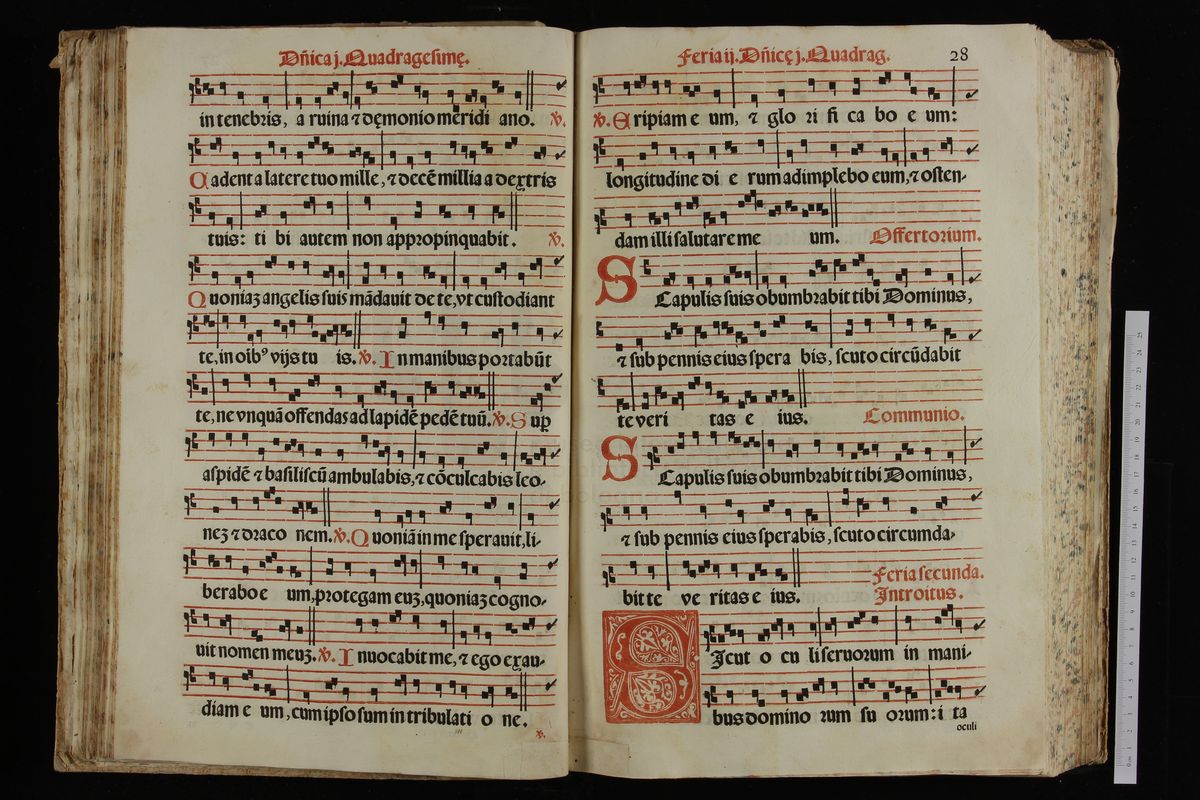 Dñica j. Quadragesimę.
in tenebris, a ruina ⁊ dęmonio meridi ano. ℣.
Cadent a latere tuo mille, ⁊ decẽ millia a dextris
tuis: ti bi autem non appropinquabit. ℣.
Quoniaȝ angelis suis mãdauit de te, vt custodiant
te, in oĩbꝰ vijs tu is. ℣. In manibus portabũt
te, ne vnquã offendas ad lapidẽ pedẽ tuũ. ℣. Sup
aspidẽ ⁊ basiliscũ ambulabis, ⁊ cõculcabis leo-
neȝ ⁊ draco nem. ℣. Quoniã in me sperauit, li-
berabo e um, protegam euȝ, quoniaȝ cogno-
uit nomen meuȝ. ℣. Inuocabit me, ⁊ ego exau-
diam e um, cum ipso sum in tribulati o ne.
℣.
Feria ij. Dñicę j. Quadrag. 28
℣. Eripiam e um, ⁊ glo ri fi ca bo e um:
longitudine di e rum adimplebo eum, ⁊ osten-
dam illi salutare me um. Offertorium.
SCapulis suis obumbrabit tibi Dominus,
⁊ sub pennis eius spera bis, scuto circũdabit
te veri tas e ius. Communio.
SCapulis suis obumbrabit tibi Dominus,
⁊ sub pennis eius sperabis, scuto circumda-
bit te ve ritas e ius. Feria secunda.
Introitus.
SIcut o cu li seruorum in mani-
bus domino rum su orum: i ta
oculi
0 cm 1 2 3 4 5 6 7 8 9 10 11 12 13 14 15 16 17 18 19 20 21 22 23 24 25